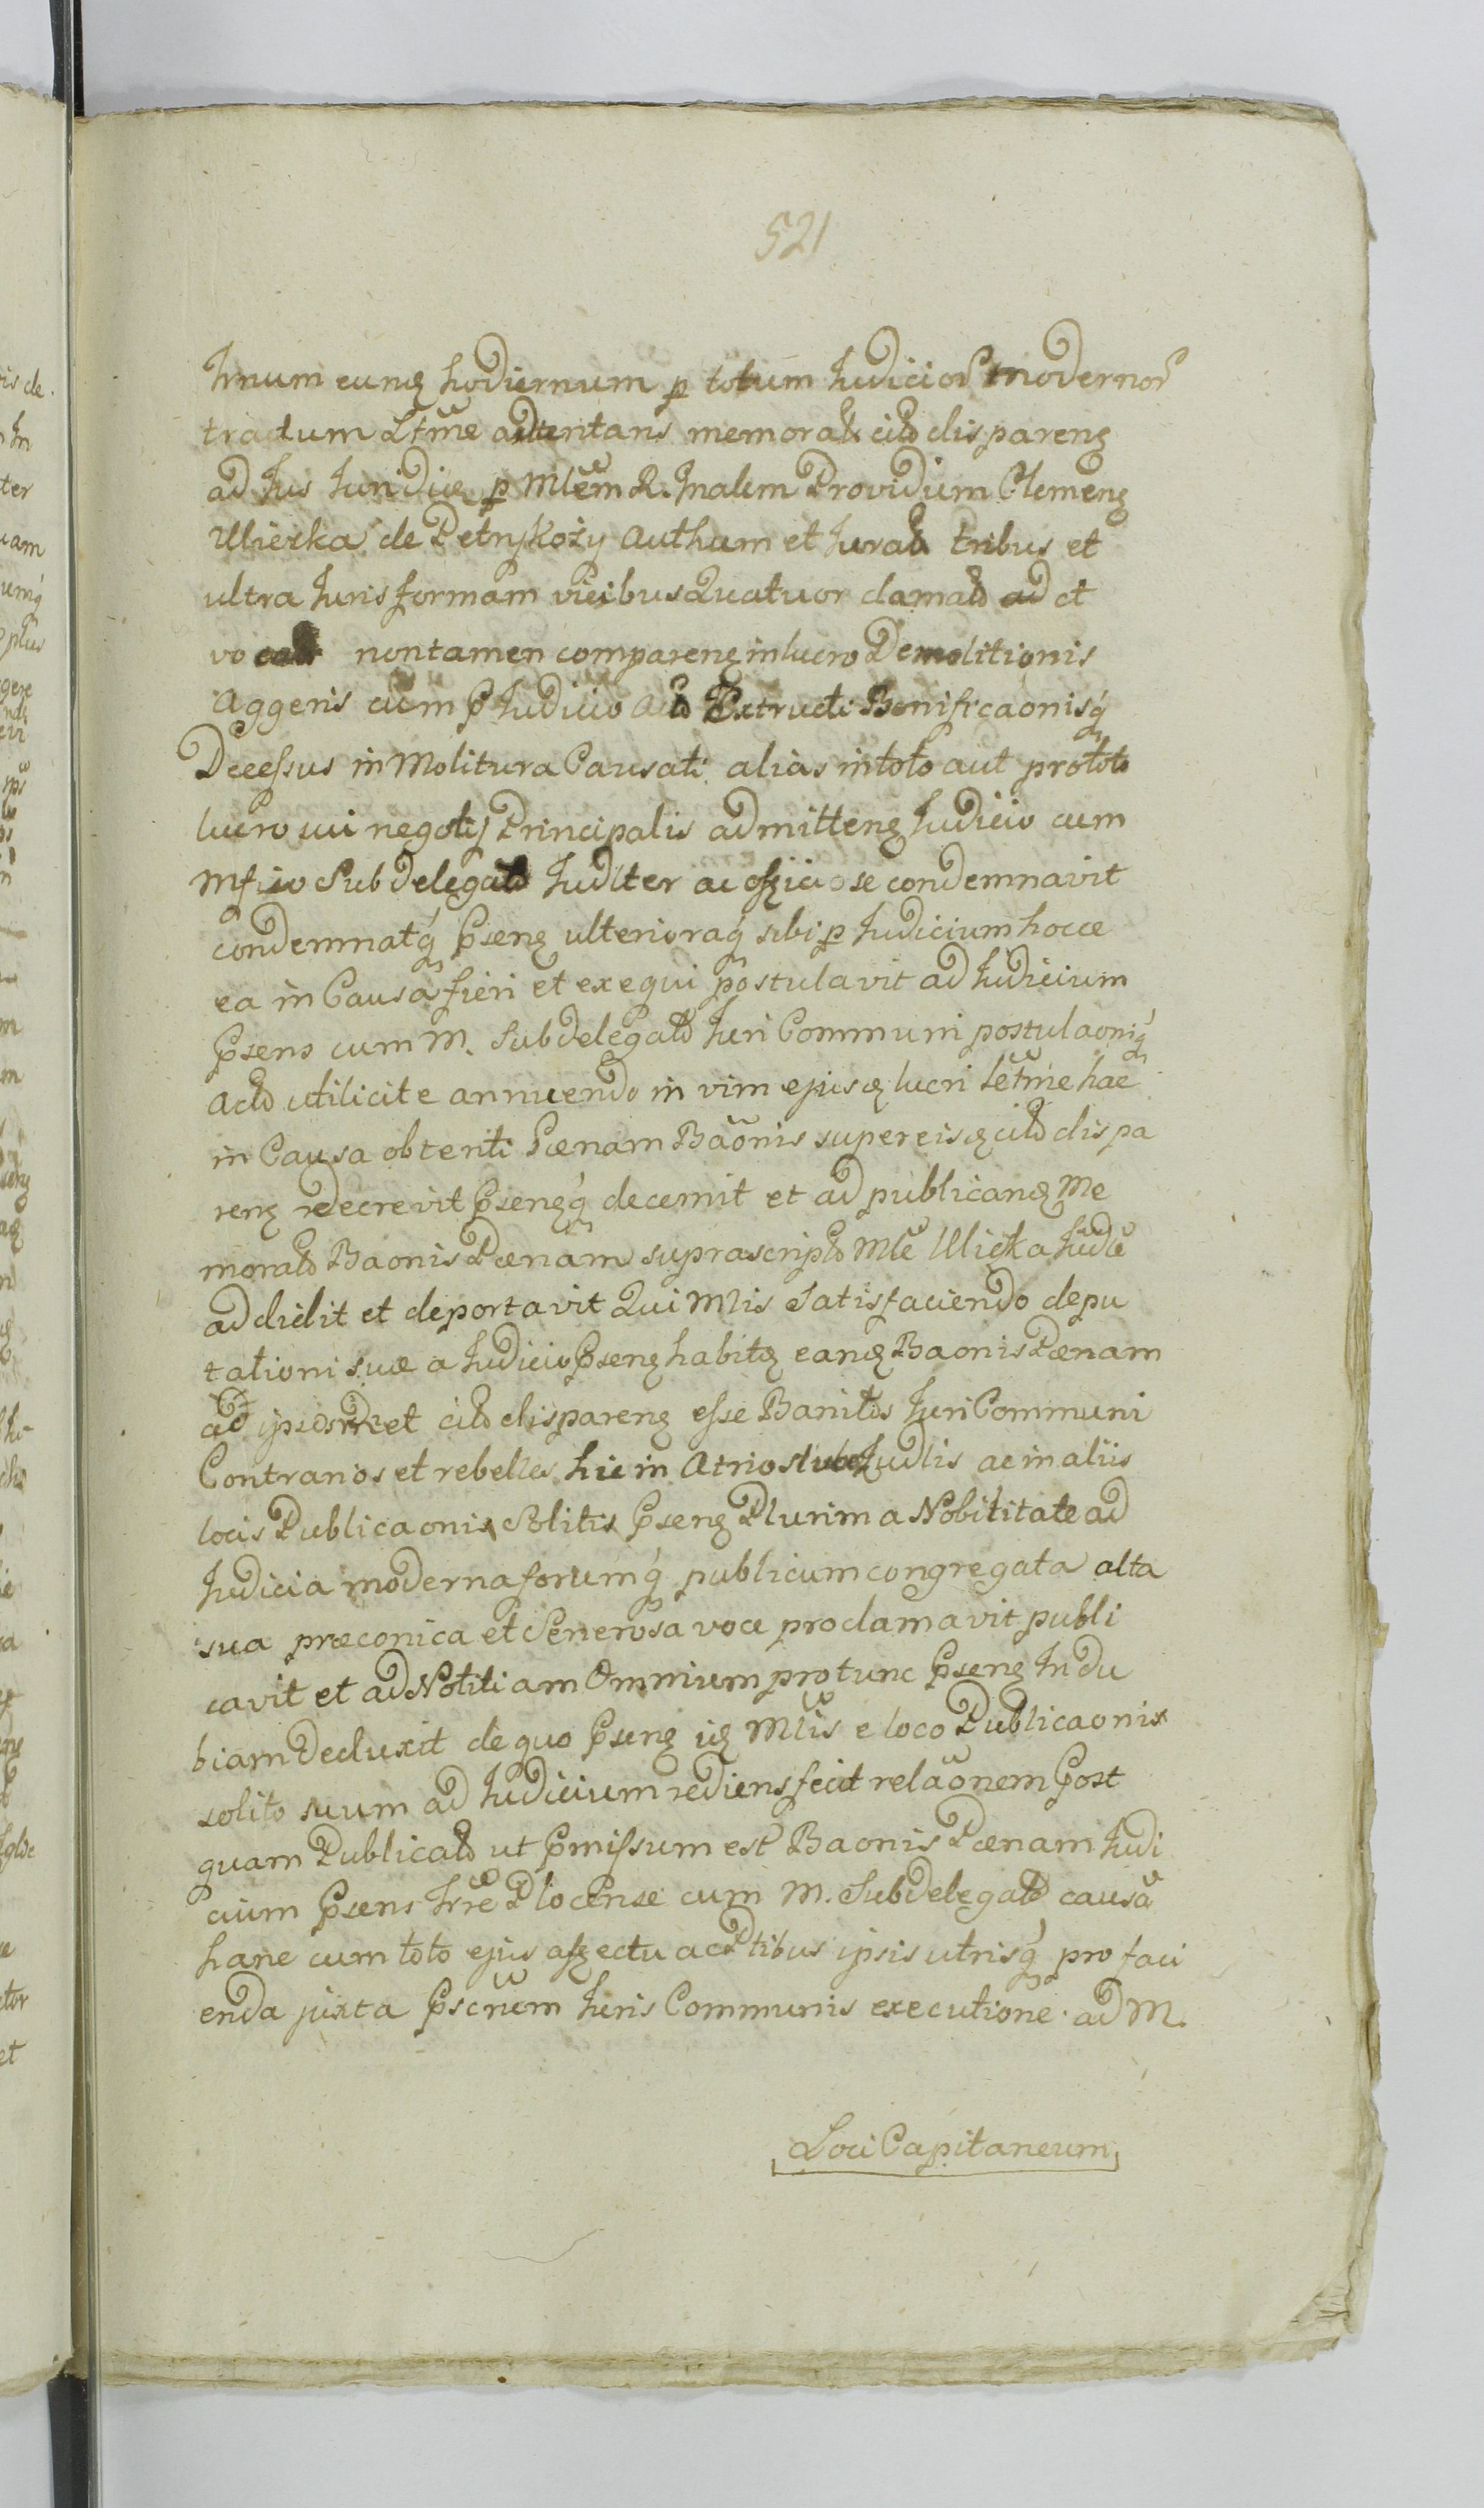 521
Trnum eunḍ hodiernum p totum Judicior modernor
tractum Ltme attentans memorat citd disparenḍ
ad Jus Juridice p Mlem R. Gnalem Providum Clemenḍ
Uliczka de Petrykozy Authum et Jurat tribus et
ultra Juris formam vicibus Quatuor clamatd ad et
vocatd non tamen comparenḍ in lucro Demolitionis
Aggeris cum P Judicio Actd Extructi Bonificaonisq
Decessus in Molitura Causati alias in toto aut pro toto
lucro sui negotij Principalis admittenḍ Judicio cum
Mfico Subdelegatd Judlter ac officiose condemnavit
condemnatq Psenḍ ulterioraq sibi p Judicium hocce
ea in Causa fieri et exequi postulavit ad Judicium
Psens cum M. Subdelegatd Juri Communi postulaoniq
Actd utilicite annuendo in vim ejusḍ lucri Letme hac
in Causa obtenti Pœnam Baonis super eisḍ citd dispa
renḍ decrevit Psenḍq decernit et ad publicanḍ Me
moratd Baonis Pœnam suprascriptd Mle Ulicka Judle
addidit et deportavit Qui Mlis Satisfaciendo depu
tationi suæ a Judicio Psenḍ habitḍ eanḍ Baonis Pœnam
ac ipsosmet citd disparenḍ esse Banitos Juri Communi
Contrarios et rebelles hic in Atrio Stubæ Judlis ac in aliis
locis Publicaonis Solitis Psenḍ Plurima Nobilitate ad
Judicia moderna forumq publicum congregata alta
sua præconica et Generosa voce proclamavit publi
cavit et ad Notitiam Omnium pro tunc Psenḍ Indu
biam Deduxit de quo Psenḍ iḍ Mlis e loco Publicaonis
solito suum ad Judicium rediens fecit relaonem Post
quam Publicatd ut Pmissum est Baonis Pœnam Judi
cium Psens Trre Plocense cum M. Subdelegatd causa
hanc cum toto ejus affectu ac Ptibus ipsis utrisq pro faci
enda juxta Pscrium Juris Communis executione ad M.
Loci Capitaneum